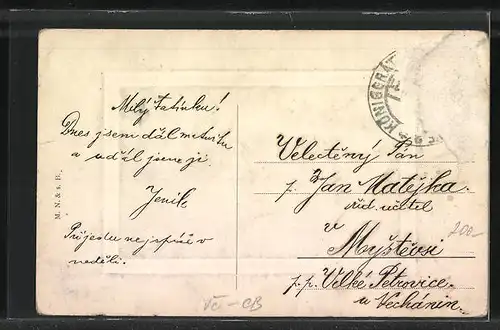 Milý Tatínku!
Dnes jsem dal
a udál jsem ji.
Jeník
Přijedu nejspíše v
neděli.
M. N. & s. B.
KÖNIGGRÄT
Velectěný Pán
p. Jan Matějka
říd. učitel
v
Myštěvsi
p. p. Velké Petrovice
u Nechanic
200-
Vč - ČB